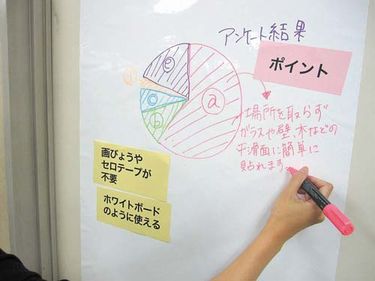 アンケート結果
ポイント
e
d
c
b
a
場所を取らず
ガラスや壁、木などの
平滑面に簡単に
貼れます
画びょうや
セロテープが
不要
ホワイトボード
のように使える